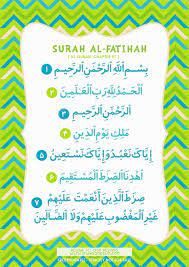 SURAH AL-FATIHAH
[AL QURAN, CHAPTER 1]
١ بِسْمِ ٱللَّهِ ٱلرَّحْمَٰنِ ٱلرَّحِيمِ
٢ ٱلْحَمْدُ لِلَّهِ رَبِّ ٱلْعَٰلَمِينَ
٣ ٱلرَّحْمَٰنِ ٱلرَّحِيمِ
٤ مَٰلِكِ يَوْمِ ٱلدِّينِ
٥ إِيَّاكَ نَعْبُدُ وَإِيَّاكَ نَسْتَعِينُ
٦ ٱهْدِنَا ٱلصِّرَٰطَ ٱلْمُسْتَقِيمَ
٧ صِرَٰطَ ٱلَّذِينَ أَنْعَمْتَ عَلَيْهِمْ
غَيْرِ ٱلْمَغْضُوبِ عَلَيْهِمْ وَلَا ٱلضَّآلِّينَ